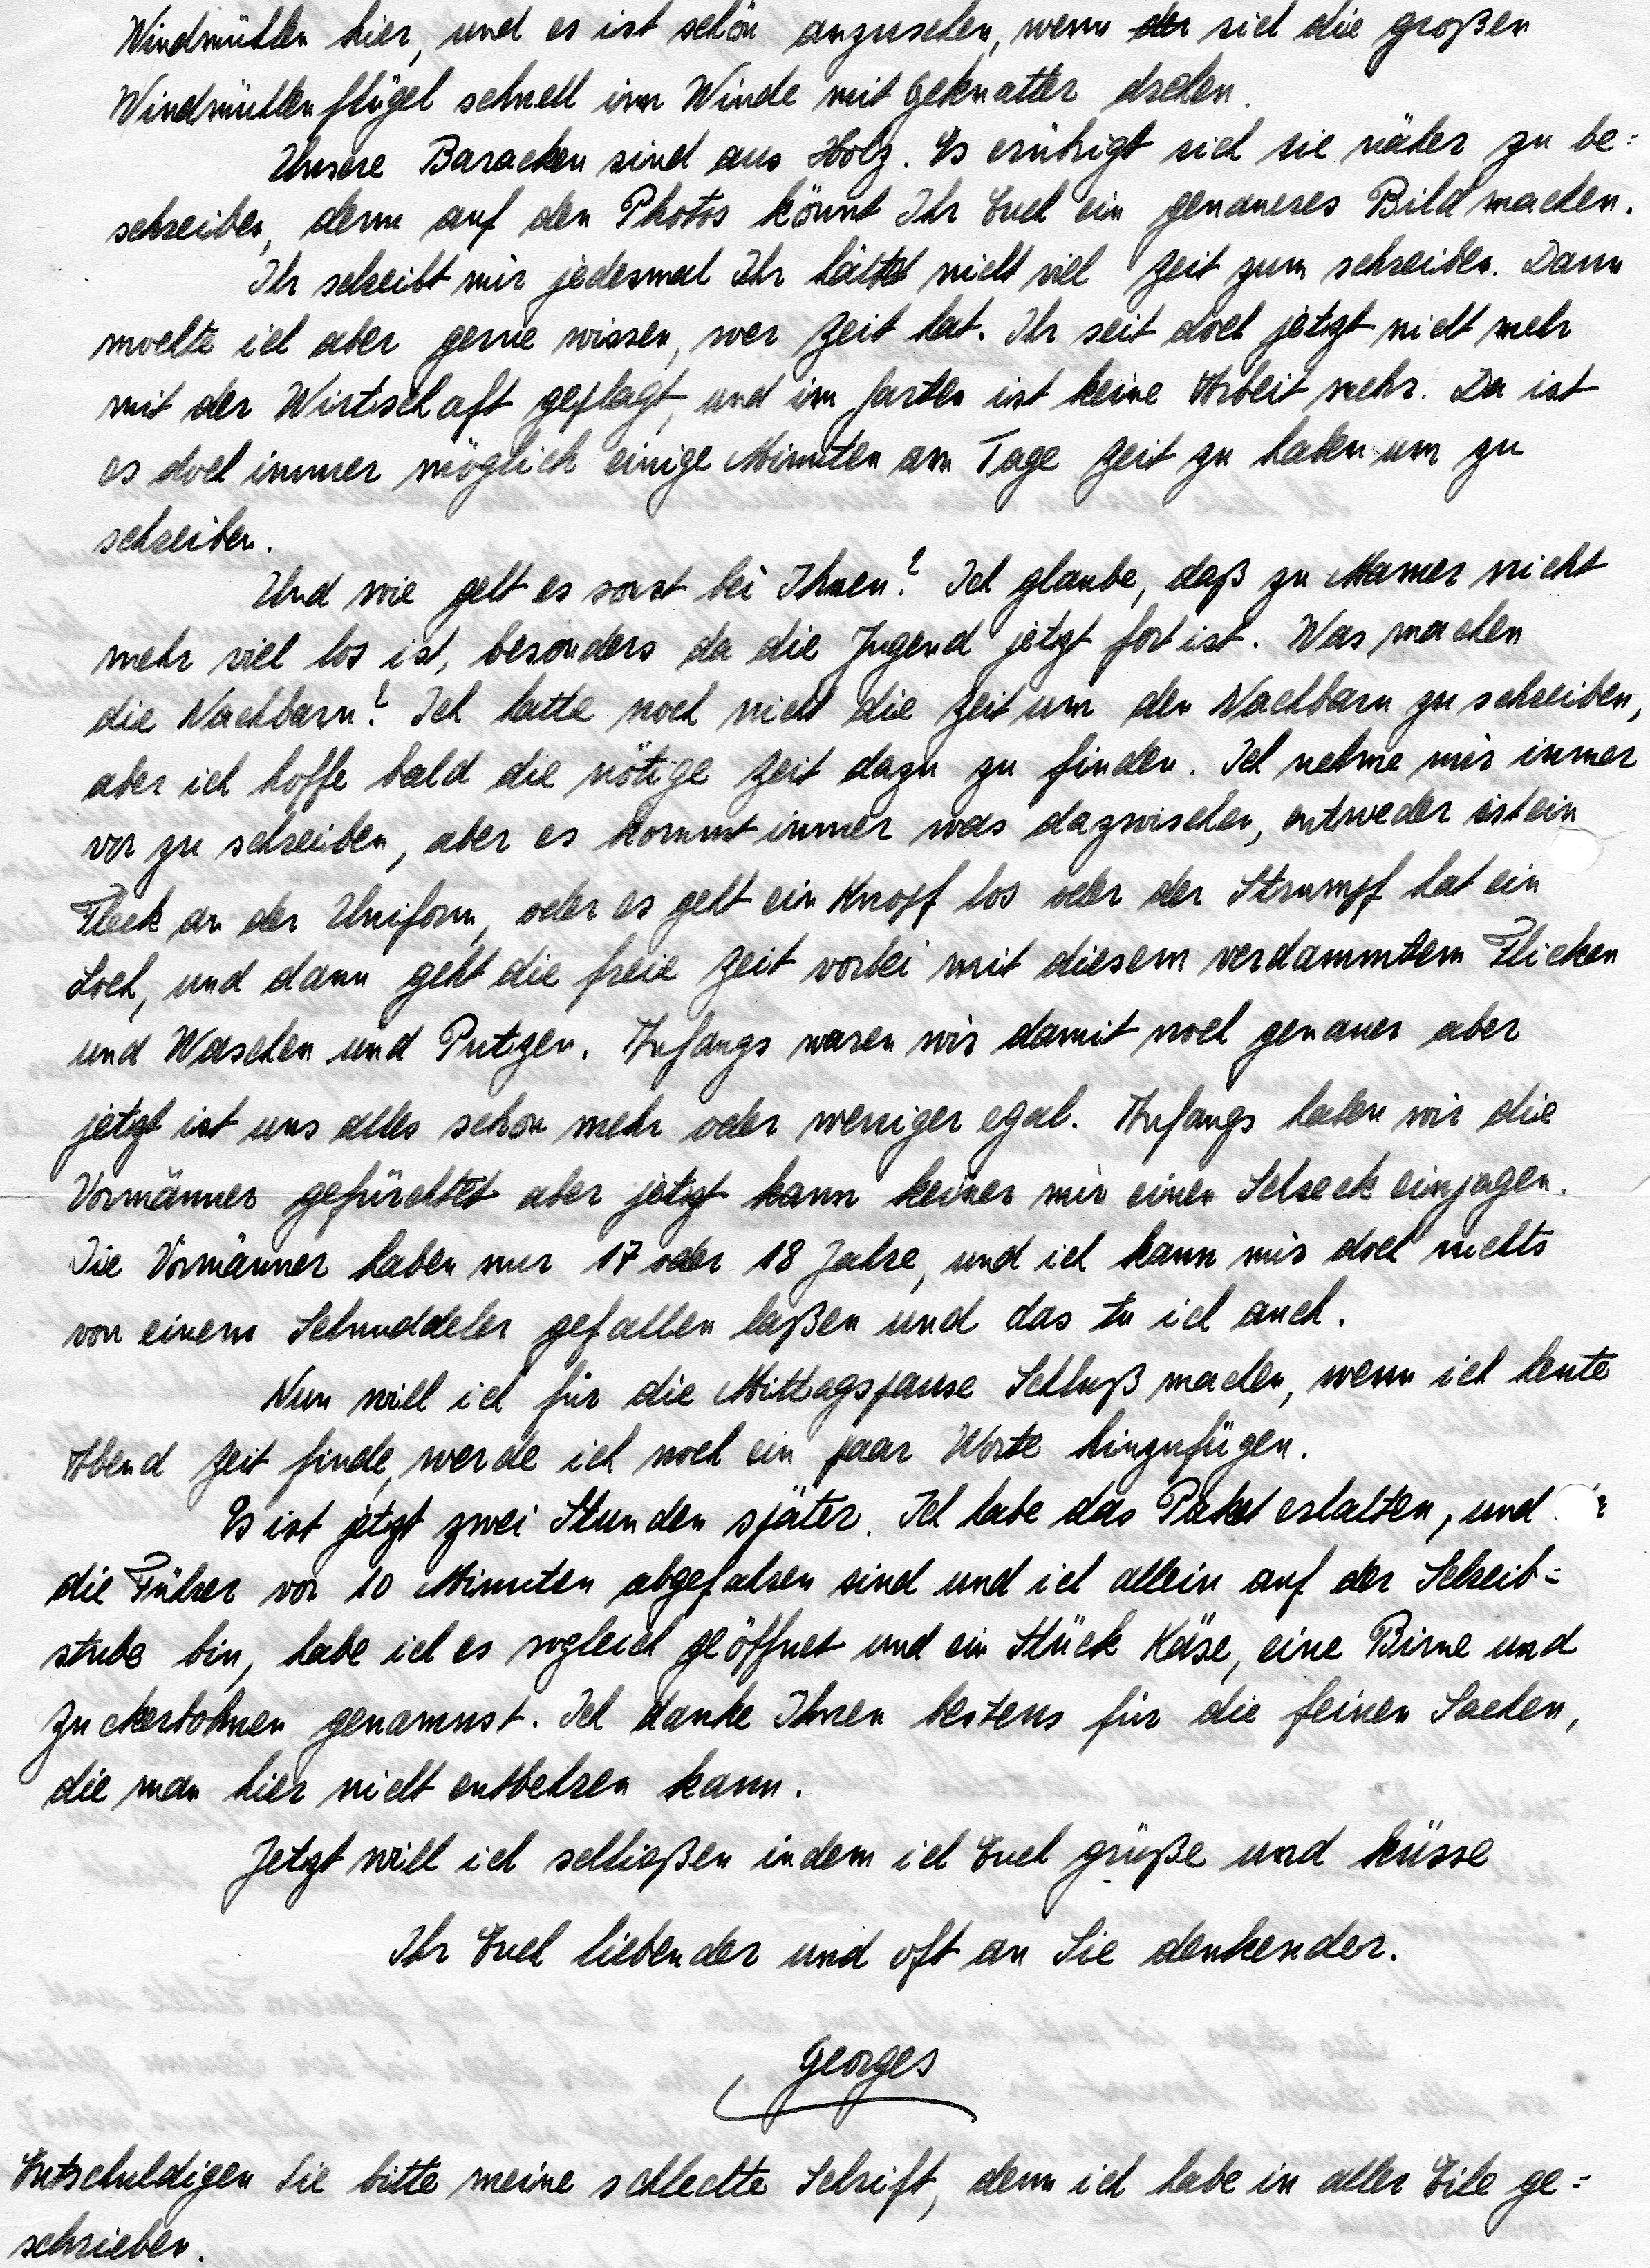 Windmühlen hier, und es ist schön anzusehen, wenn der sich die großen
Windmühlenflügel schnell im Winde mit Geknatter drehen.
Unsere Baracken sind aus Holz. Es erübrigt sich sie näher zu be=
schreiben, denn auf den Photos könnt Ihr Euch ein genaueres Bild machen.
Ihr schreibt mir jedesmal Ihr hättet nicht viel Zeit zum schreiben. Dann
mochte ich aber gerne wissen, wer Zeit hat. Ihr seit doch jetzt nicht mehr
mit der Wirtschaft geplagt, und im Garten ist keine Arbeit mehr. Da ist
es doch immer möglich einige Minuten am Tage Zeit zu haben um zu
schreiben.
Und wie geht es sonst bei Ihnen? Ich glaube, daß zu Mamer nicht
mehr viel los ist, besonders da die Jugend jetzt fort ist. Was machen
die Nachbarn? Ich hatte noch nicht die Zeit um den Nachbarn zu schreiben,
aber ich hoffe bald die nötige Zeit dazu zu finden. Ich nehme mir immer
vor zu schreiben, aber es kommt immer was dazwischen, entweder ist ein
Fleck an der Uniform, oder es geht ein Knopf los oder der Strumpf hat ein
Loch, und dann geht die freie Zeit vorbei mit diesem verdammtem Flicken
und Waschen und Putzen. Anfangs waren wir damit noch genauer aber
jetzt ist uns alles schon mehr oder weniger egal. Anfangs haben wir die
Vormänner gefürchtet aber jetzt kann keiner mir einen Schreck einjagen.
Die Vormänner haben nur 17 oder 18 Jahre, und ich kann mir doch nichts
von einem Schnuddeler gefallen laßen und das tu ich auch.
Nun will ich für die Mittagspause Schluß machen, wenn ich heute
Abend Zeit finde, werde ich noch ein paar Worte hinzufügen.
Es ist jetzt zwei Stunden später. Ich habe das Paket erhalten, und
die Führer vor 10 Minuten abgefahren sind und ich allein auf der Schreib=
stube bin, habe ich es sogleich geöffnet und ein Stück Käse, eine Birne und
Zuckerbohnen genamust. Ich danke Ihnen bestens für die feinen Sachen,
die man hier nicht entbehren kann.
Jetzt will ich schließen indem ich Euch grüße und küsse
Ihr Euch liebender und oft an Sie denkender.
Georges
Entschuldigen Sie bitte meine schlechte Schrift, denn ich habe in aller Eile ge=
schrieben.